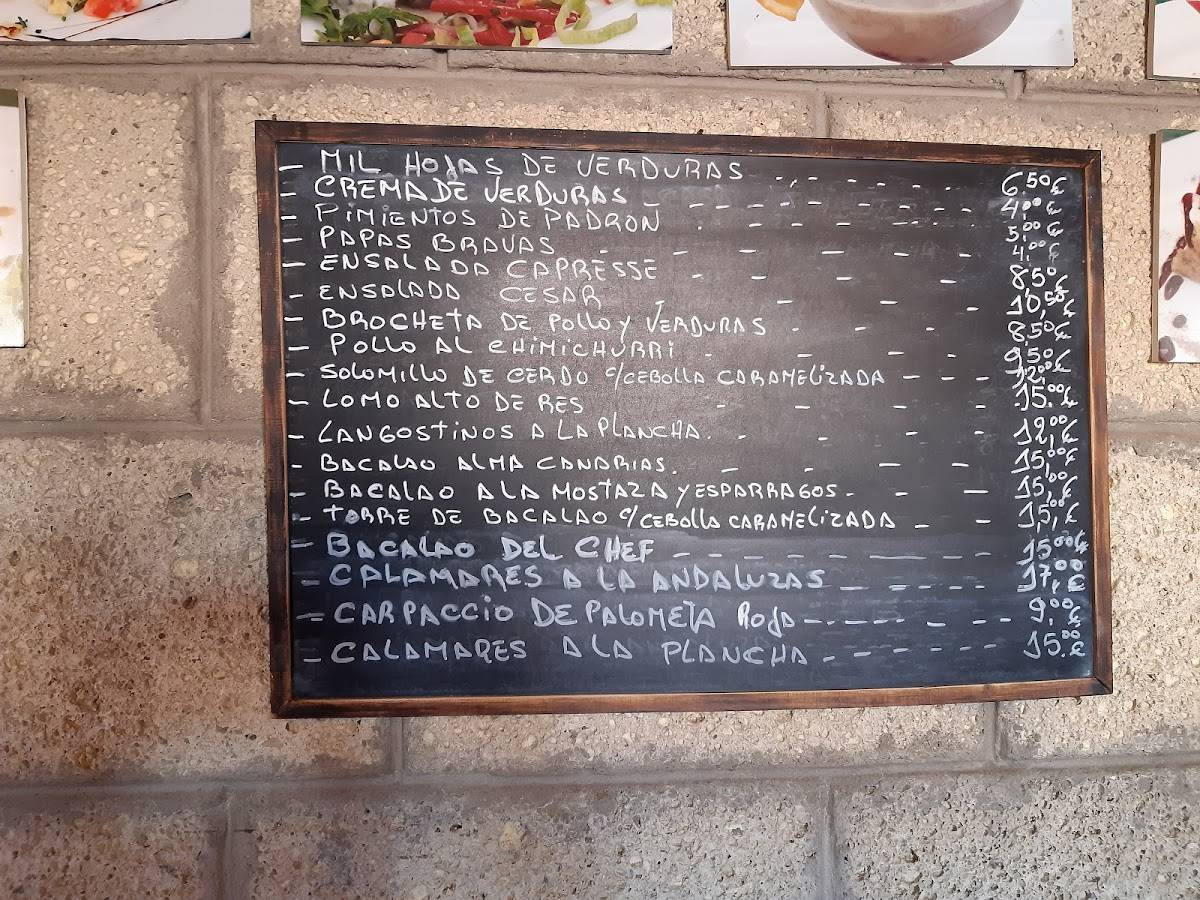 - MIL HOJAS DE VERDURAS - - - - - - 6.50€
- CREMA DE VERDURAS - - - - - - - - 4,00€
- PIMIENTOS DE PADRON - - - - - 5,00€
- PAPAS BRAVAS - - - - - - 4,00€
- ENSALADA CAPRESSE - - - - - 8,50€
- ENSALADA CESAR - - - - 10,50€
- BROCHETA DE POLLO Y VERDURAS - - - - 8,50€
- POLLO AL CHIMICHURRI - - - - 9,50€
- SOLOMILLO DE CERDO C/CEBOLLA CARAMELIZADA - - - 12,00€
- LOMO ALTO DE RES - - - - 15.00€
- LANGOSTINOS A LA PLANCHA. - - - - 12,00€
- BACALAO ALMA CANARIAS. - - - - 15,00€
- BACALAO A LA MOSTAZA Y ESPARRAGOS - - - 15,00€
- TORRE DE BACALAO C/CEBOLLA CARAMELIZADA - - 15,00€
- BACALAO DEL CHEF - - - - - - - - - 15.00€
- CALAMARES A LA ANDALUZAS - - - - - - 17,00€
- CARPACCIO DE PALOMETA ROJA - - - - - - - - 9,00€
- CALAMARES A LA PLANCHA - - - - - - - 15.00€